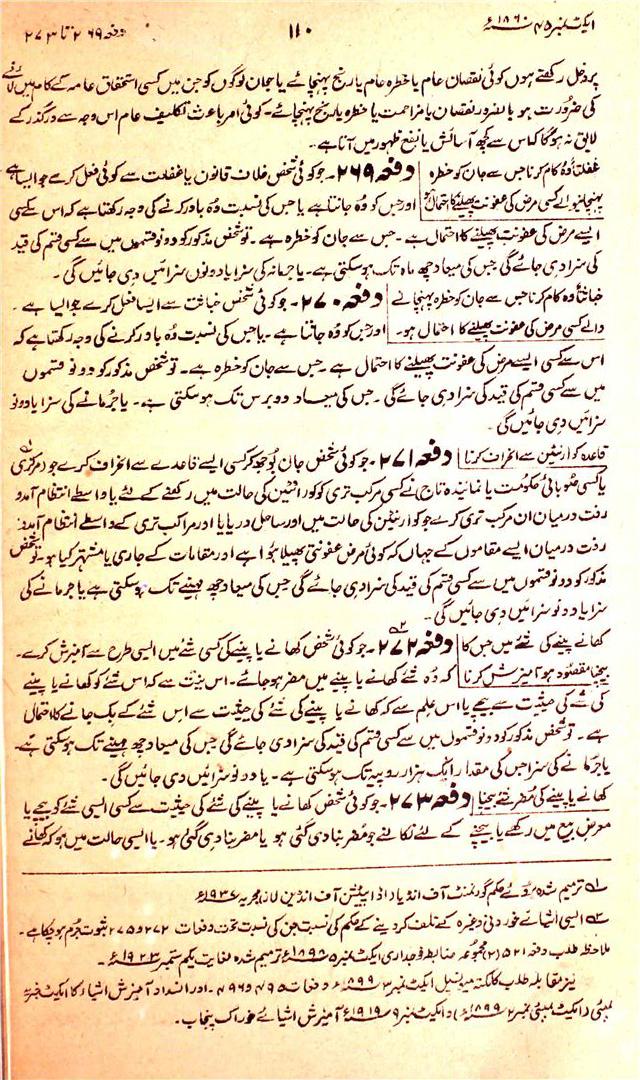 ایکٹ نمبر ۴۵ ۱۸۶۰ء
۱۱۰
دفعہ ۲۶۹ تا ۲۷۳
پر دخل رکھتے ہوں کوئی نقصان عام یا خطرہ عام یا رنج پہنچائے یا جو ان لوگوں کو جن میں کسی استحقاق عامہ کے کام میں لانے
کی ضرورت ہو بالضرور نقصان یا مزاحمت یا خطرہ یا رنج پہنچائے۔ کوئی امر باعث تکلیف عام اس وجہ سے درگذر کے
لایق نہ ہوگا کہ اس سے کچھ آسائش یا نفع ظہور میں آتا ہے۔
غفلتاً وہ کام کرنا جس سے جان کو خطرہ
پہنچانیوالے کسی مرض کی عفونت پھیلنے کا احتمال ہو
دفعہ ۲۶۹۔ جو کوئی شخص خلاف قانون یا غفلت سے کوئی فعل کرے جو ایسا ہے
اور جس کو وہ جانتا ہے یا جس کی نسبت وہ باور کرنے کی وجہ رکھتا ہے کہ اس سے کسی
ایسے مرض کی عفونت پھیلنے کا احتمال ہے۔ جس سے جان کو خطرہ ہے۔ تو شخص مذکور کو دونوں قسموں میں سے کسی قسم کی قید
کی سزا دی جائے گی جس کی میعاد چھ ماہ تک ہوسکتی ہے۔ یا جرمانہ کی سزا یا دونوں سزائیں دی جائیں گی۔
خباثتاً وہ کام کرنا جس سے جان کو خطرہ پہنچانے
والے کسی مرض کی عفونت پھیلنے کا احتمال ہو۔
دفعہ ۲۷۰۔ جو کوئی شخص خباثت سے ایسا فعل کرے جو ایسا ہے۔
اور جس کو وہ جانتا ہے۔ یا جس کی نسبت وہ باور کرنے کی وجہ رکھتا ہے کہ
اس سے کسی ایسے مرض کی عفونت پھیلنے کا احتمال ہے۔ جس سے جان کو خطرہ ہے۔ تو شخص مذکور کو دونوں قسموں
میں سے کسی قسم کی قید کی سزا دی جائے گی۔ جس کی میعاد دو برس تک ہوسکتی ہے۔ یا جرمانے کی سزا یا دونو
سزائیں دی جائیں گی۔
قاعدہ کوارنٹین سے انحراف کرنا
دفعہ ۲۷۱۔ جو کوئی شخص جان بوجھ کر کسی ایسے قاعدے سے انحراف کرے جو (مرکزی
یا کسی صوبائی حکومت یا نمایندہ تاج) نے کسی مرکب تری کو کوارنٹین کی حالت میں رکھنے کے لئے یا واسطے انتظام آمدو
رفت درمیان ان مرکب تری کے جو کوارنٹین کی حالت میں اور ساحل دریا یا اور مراکب تری کے واسطے انتظام آمدو
رفت درمیان ایسے مقاموں کے جہاں کہ کوئی مرض عفونتی پھیلا ہوا ہے اور مقامات کے جاری یا مشتہر کیا ہو تو شخص
مذکور کو دونو قسموں میں سے کسی قسم کی قید کی سزا دی جائے گی جس کی میعاد چھ مہینے تک ہوسکتی ہے یا جرمانے کی
سزا یا دونو سزائیں دی جائیں گی۔
کھانے پینے کی شئے میں جس کا
بیچنا مقصود ہو آمیزش کرنا
دفعہ ۲۷۲۔ جو کوئی شخص کھانے یا پینے کی کسی شئے میں ایسی طرح سے آمیزش کرے۔
کہ وہ شئے کھانے یا پینے میں مضر ہو جائے۔ اس نیت سے کہ اس شئے کو کھانے یا پینے
کی شئے کی حیثیت سے بیچے یا اس علم سے کہ کھانے یا پینے کی شئے کی حیثیت سے اس شئے کے بک جانے کا احتمال
ہے۔ تو شخص مذکور کو دونو قسموں میں سے کسی قسم کی قید کی سزا دی جائے گی جس کی میعاد چھ مہینے تک ہوسکتی ہے۔
یا جرمانے کی سزا جس کی مقدار ایک ہزار روپیہ تک ہوسکتی ہے۔ یا دونو سزائیں دی جائیں گی۔
کھانے یا پینے کی مضر شئے بیچنا
دفعہ ۲۷۳۔ جو کوئی شخص کھانے یا پینے کی شئے کی حیثیت سے کسی ایسی شئے کو بیچے یا
معرض بیع میں رکھے یا بیچنے کے لئے نکالے جو مضر بنا دی گئی ہو یا مضر بنا دی گئی ہو۔ یا ایسی حالت میں ہو کہ کھانے
۱؎ ترمیم شدہ بروئے حکم گورنمنٹ آف انڈیا (اڈاپٹیشن آف انڈین لاز) مجریہ ۱۹۳۷ء
۲؎ ایسی اشیائے خوردنی وغیرہ کے تلف کر دینے کے حکم کی نسبت جن کی نسبت تحت دفعات ۲۷۲ و ۲۷۵ ثبوت جرم ہوچکا ہے۔
ملاحظہ طلب دفعہ ۵۲۱ (۲) مجموعہ ضابطہ فوجداری ایکٹ نمبر ۵ ۱۸۹۸ء ترمیم شدہ لغایت یکم ستمبر ۱۹۲۳ء۔
نیز مقابلہ طلب کلکتہ میونسپل ایکٹ نمبر ۳ ۱۸۹۹ء دفعات ۴۹۵ و ۴۹۶۔ اور انسداد آمیزش اشیاء کا ایکٹ نمبر
بمبئی (ایکٹ بمبئی نمبر ۲ ۱۸۹۹ء) و ایکٹ نمبر ۹ ۱۹۱۹ء آمیزش اشیائے خوراک پنجاب۔